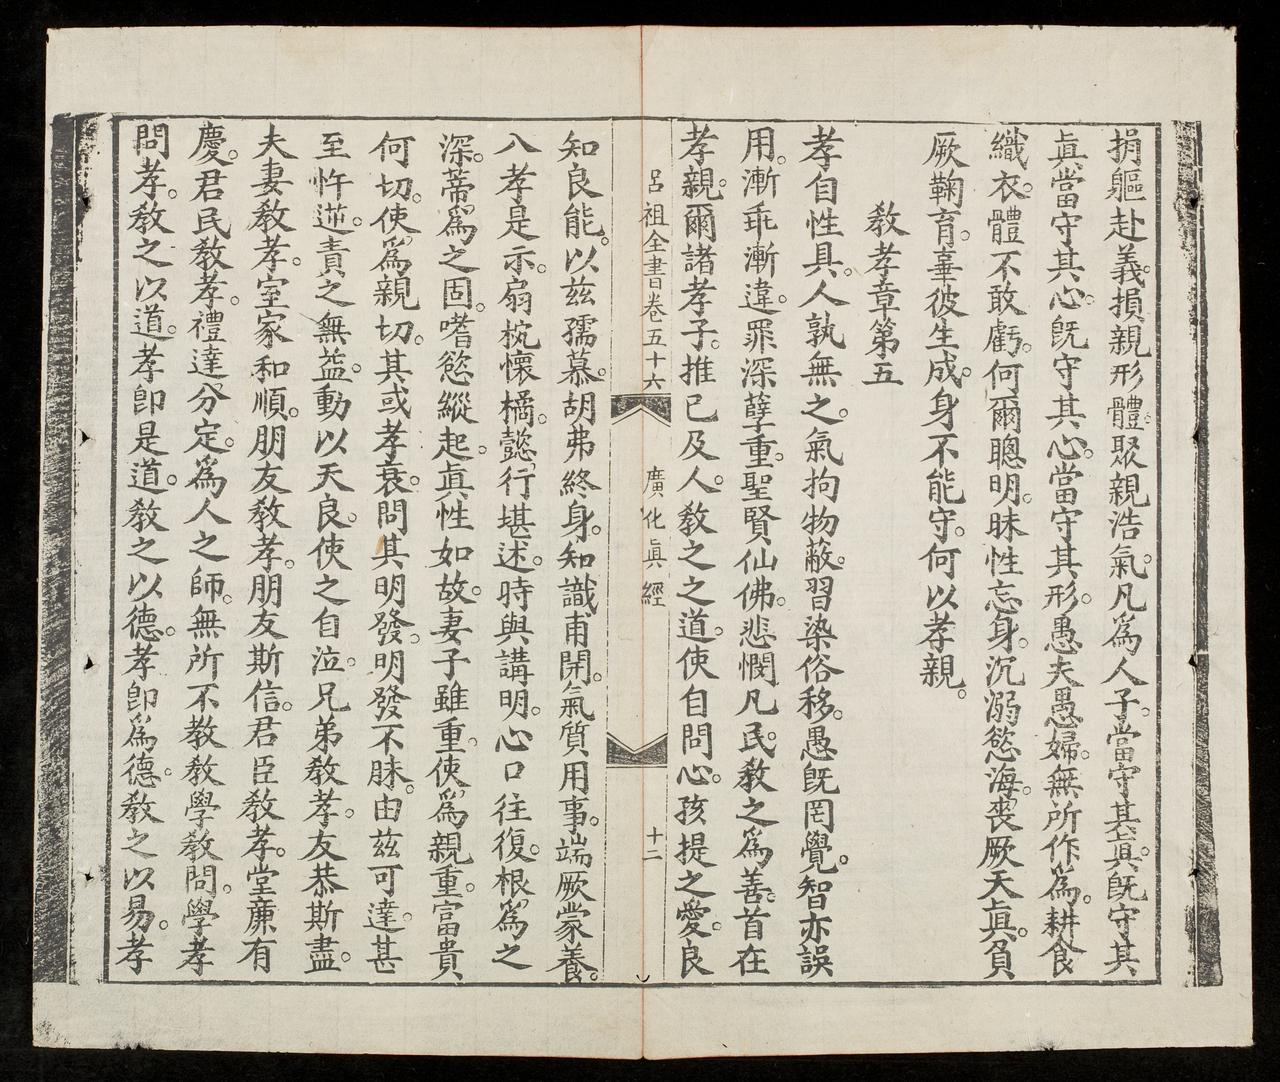 捐軀赴義。損親形體。聚親浩氣。凡爲人子。當守其眞。旣守其
眞。當守其心。旣守其心。當守其形。愚夫愚婦。無所作爲。耕食
織衣。體不敢虧。何爾聰明。昧性忘身。沉溺慾海。喪厥天眞。負
厥鞠育。辜彼生成。身不能守。何以孝親。
教孝章第五
孝自性具。人孰無之。氣拘物蔽。習染俗移。愚旣罔覺。智亦誤
用。漸乖漸違。罪深孽重。聖賢仙佛。悲憫凡民。教之爲善。首在
孝親。爾諸孝子。推已及人。教之之道。使自問心。孩提之愛。良
呂祖全書卷五十六
廣化眞經
十二
知良能。以兹孺慕。胡弗終身。知識甫開。氣質用事。端厥蒙養。
八孝是示。扇枕懷橘。懿行堪述。時與講明。心口往復。根爲之
深。蒂爲之固。嗜慾縱起。眞性如故。妻子雖重。使爲親重。富貴
何切。使爲親切。其或孝衰。問其明發。明發不昧。由兹可達。甚
至忤逆。責之無益。動以天良。使之自泣。兄弟教孝。友恭斯盡。
夫妻教孝。室家和順。朋友教孝。朋友斯信。君臣教孝。堂亷有
慶。君民教孝。禮達分定。爲人之師。無所不教。教學教問。學孝
問孝。教之以道。孝卽是道。教之以德。孝卽爲德。教之以易。孝